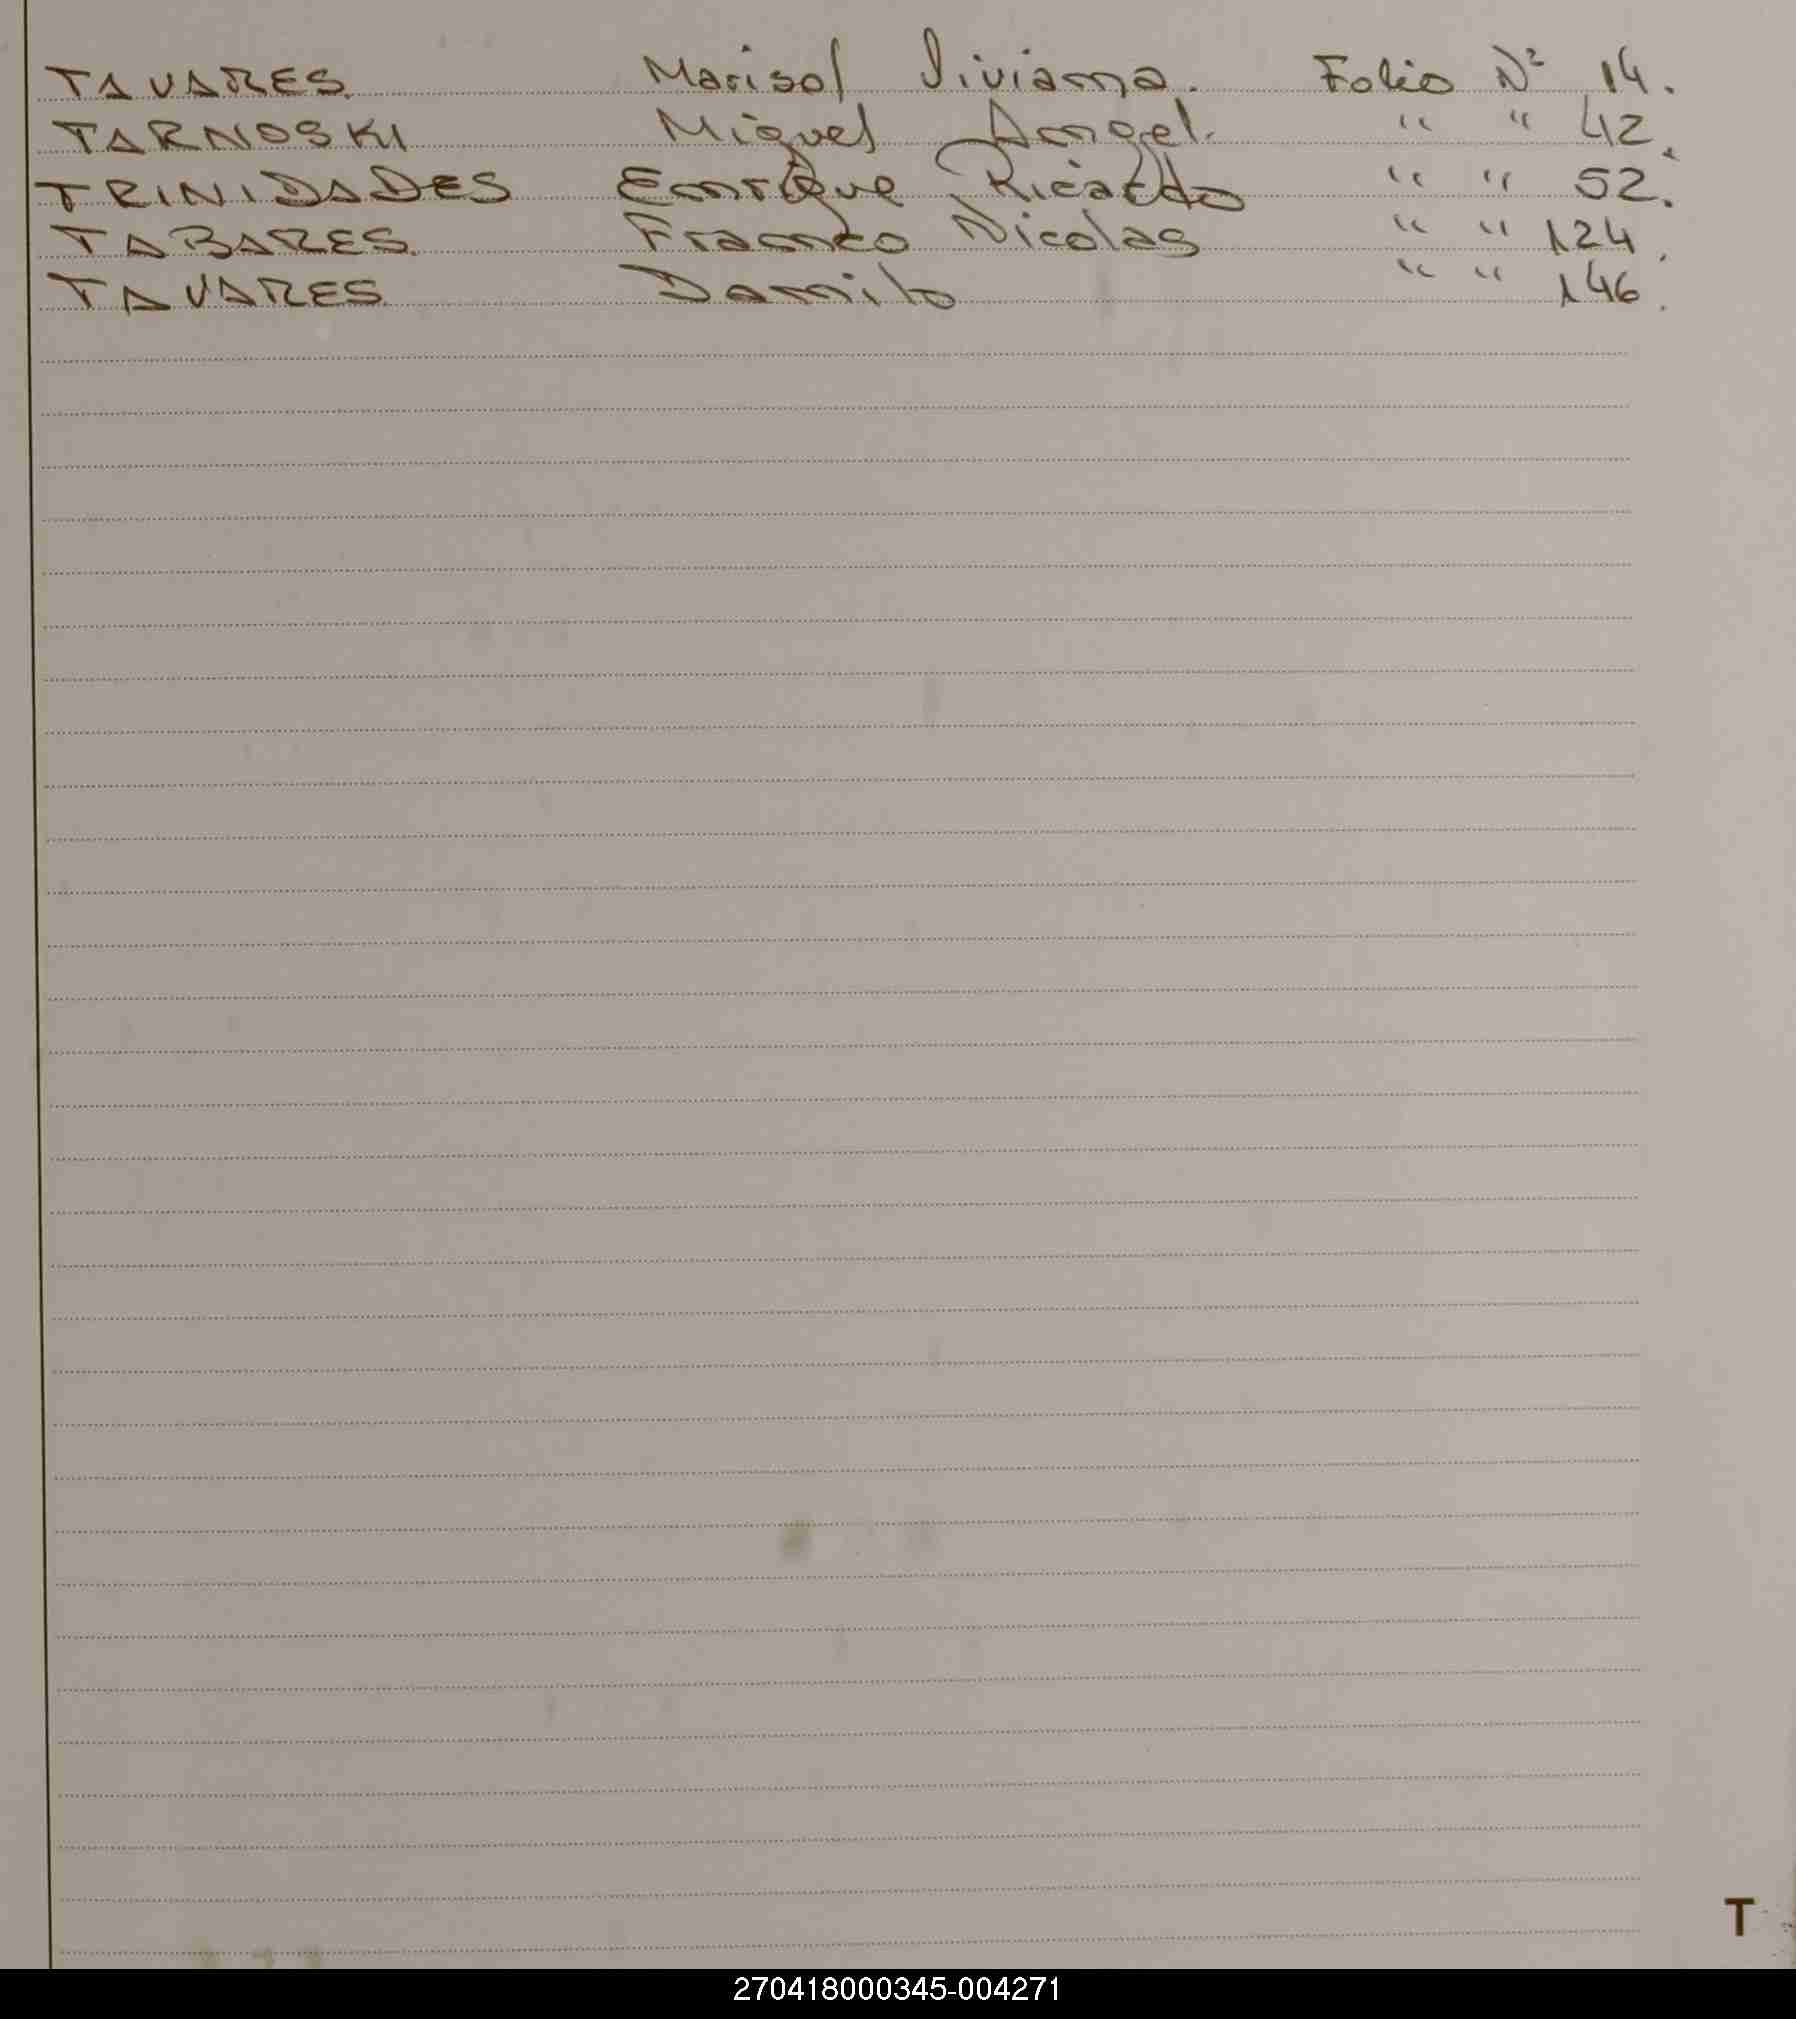 TAVARES. Marisol Viviana. Folio Nº 14.
TARNOSKI Miguel Angel. " " 42.
TRINIDADES Enrique Ricardo " " 52.
TABARES. Franco Nicolas " " 124.
TAVARES Danilo " " 146.
T
270418000345-004271